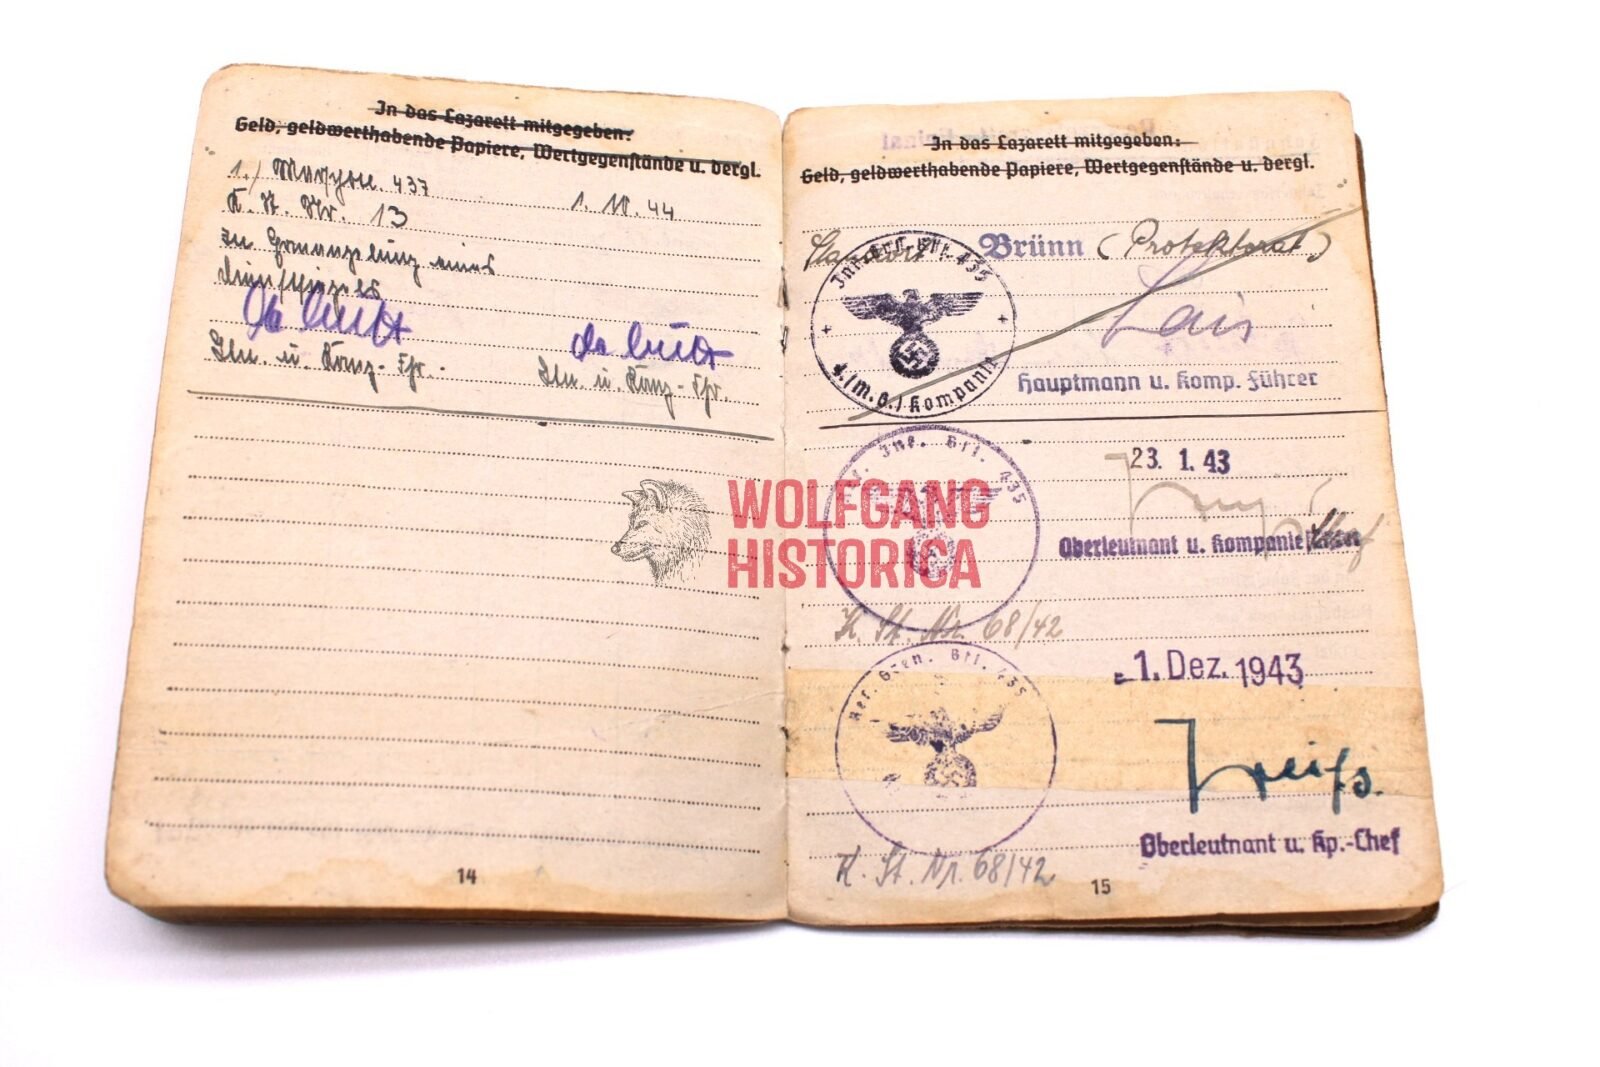 In das Lazarett mitgegeben:
Geld, geldwerthabende Papiere, Wertgegenstände u. dergl.
1./ 437 1. IV. 44
K. St. Nr. 13
In Ermangelung eines
Dienstsiegels
Lln. u. Komp.-Fhr. Lln. u. Komp.-Fhr.
14
In das Lazarett mitgegeben:
Geld, geldwerthabende Papiere, Wertgegenstände u. dergl.
Standort Brünn (Protektorat)
Inf. Ers. Btl. 435
4./m.G./Kompanie
Lais
Hauptmann u. Komp. Führer
Inf. Btl. 435
23. 1. 43
Oberleutnant u. Kompanie Chef
K. St. Nr. 68/42
Res. Gren. Btl. 435
-1. Dez. 1943
Oberleutnant u. Kp.-Chef
K. St. Nr. 68/42
15
WOLFGANG
HISTORICA